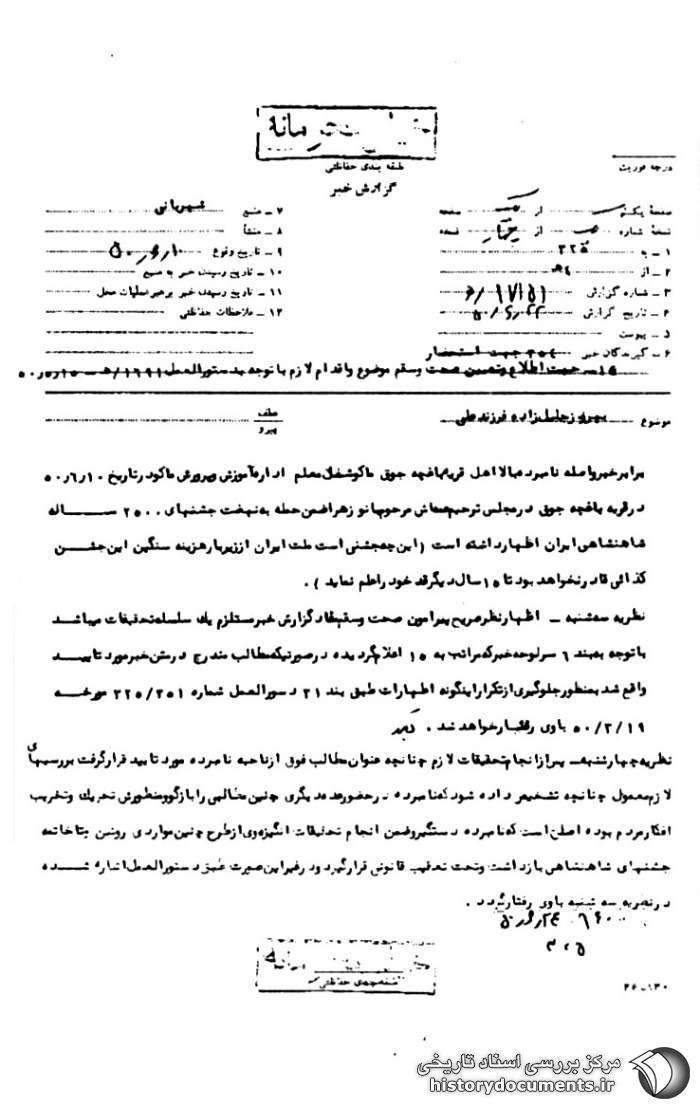 خیلی محرمانه
طبقه بندی حفاظتی
گزارش خبر
درجه فوریت
صفحه یکم از یک صفحه
نسخه شماره از چهار نسخه
۱ ـ به ۳۲۵
۲ ـ از ۴ھ
۳ ـ شماره گزارش ۱۷۱۵۱/ھ
۴ ـ تاریخ گزارش ۵۰/۶/۲۲
۵ ـ پیوست
۶ ـ گیرندگان خبر ۳۵۴ جهت استحضار
۷ ـ منبع شهربانی
۸ ـ منشأ
۹ ـ تاریخ وقوع ۵۰ر۶ر۱۰
۱۰ ـ تاریخ رسیدن خبر به منبع
۱۱ ـ تاریخ رسیدن خبر برهبر عملیات محل
۱۲ ـ ملاحظات حفاظتی
۱۵ـ جهت اطلاع وتعیین صحت وسقم موضوع واقدام لازم با توجه بدستورالعمل ۱۶۹۱/ھ ـ ۵۰ر۵ر۱۵
موضوع بهروز جلیل زاده فرزند علی
عطف
پیرو
برابر خبر واصله نامبرده بالا اهل قریه باغچه جوق ماکو شغل معلم اداره آموزش وپرورش ماکو در تاریخ ۵۰ر۶ر۱۰
در قریه باغچه جوق در مجلس ترحیم عمه اش مرحومه بانو زهرا ضمن حمله به نهضت جشنهای ۲۵۰۰ ساله
شاهنشاهی ایران اظهار داشته است (این چه جشنی است ملت ایران از زیر بار هزینه سنگین این جشن
کذائی قادر نخواهد بود تا ۱۵ سال دیگر قد خود را علم نماید ) .
نظریه سه شنبه ـ اظهار نظر صریح پیرامون صحت وسقم مفاد گزارش خبر مستلزم یک سلسله تحقیقات میباشد
با توجه به بند ۶ سرلوحه خبر که مراتب به ۱۵ اعلام گردیده در صورتیکه مطالب مندرج در متن خبر مورد تایید
واقع شد بمنظور جلوگیری از تکرار اینگونه اظهارات طبق بند ۲۱ دستورالعمل شماره ۳۲۵/۳۵۱ مورخه
۵۰/۳/۱۹ با وی رفتار خواهد شد .
نظریه چهارشنبه ـ پس از انجام تحقیقات لازم چنانچه عنوان مطالب فوق از ناحیه نامبرده مورد تایید قرار گرفت بررسیهای
لازم معمول چنانچه تشخیص داده شود که نامبرده در حضور عده دیگری چنین مطالبی را بازگو و منظورش تحریک وتخریب
افکار مردم بوده اصلح است که نامبرده دستگیر و ضمن انجام تحقیقات انگیزه وی از طرح چنین مواردی روشن تا خاتمه
جشنهای شاهنشاهی بازداشت وتحت تعقیب قانونی قرار گیرد و در غیر این صورت طبق دستورالعمل اشاره شده
در نظریه سه شنبه با وی رفتار گردد .
خیلی محرمانه
طبقه بندی حفاظتی
۲۶ـ۱۳۰
مرکز بررسی اسناد تاریخی
historydocuments.ir